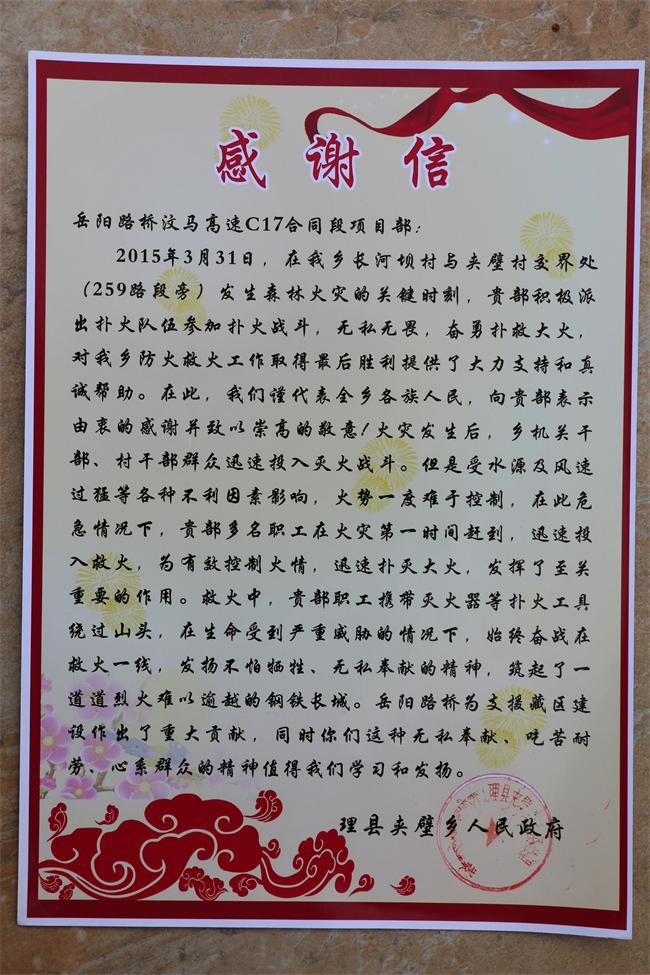 感谢信
岳阳路桥汶马高速C17合同段项目部：
2015年3月31日，在我乡长河坝村与夹壁村交界处
（259路段旁）发生森林火灾的关键时刻，贵部积极派
出扑火队伍参加扑火战斗，无私无畏，奋勇扑救大火，
对我乡防火救火工作取得最后胜利提供了大力支持和真
诚帮助。在此，我们谨代表全乡各族人民，向贵部表示
由衷的感谢并致以崇高的敬意！火灾发生后，乡机关干
部、村干部群众迅速投入灭火战斗。但是受水源及风速
过猛等各种不利因素影响，火势一度难于控制，在此危
急情况下，贵部多名职工在火灾第一时间赶到，迅速投
入救火，为有效控制火情，迅速扑灭大火，发挥了至关
重要的作用。救火中，贵部职工携带灭火器等扑火工具
绕过山头，在生命受到严重威胁的情况下，始终奋战在
救火一线，发扬不怕牺牲、无私奉献的精神，筑起了一
道道烈火难以逾越的钢铁长城。岳阳路桥为支援藏区建
设作出了重大贡献，同时你们这种无私奉献、吃苦耐
劳、心系群众的精神值得我们学习和发扬。
理县夹壁乡人民政府